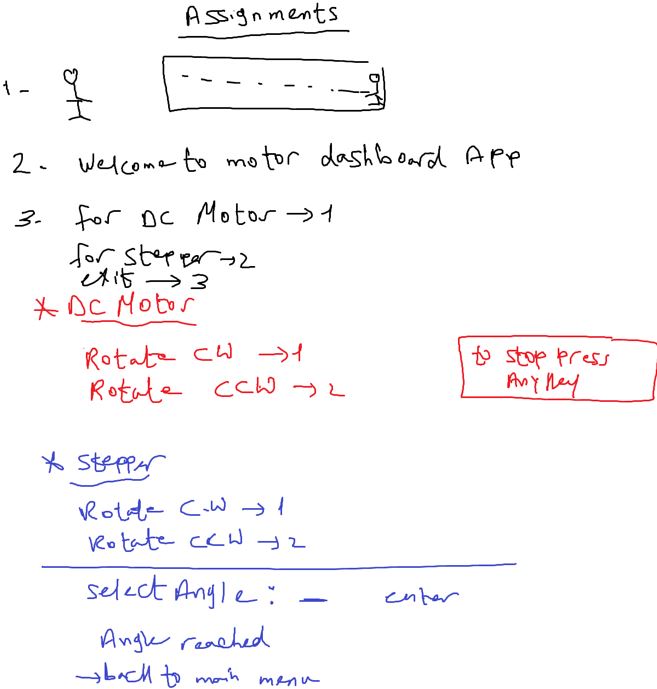 Assignments
1-
2- Welcome to motor dashboard App
3- for DC Motor → 1
for stepper → 2
exit → 3
* DC Motor
Rotate CW → 1
Rotate CCW → 2
to stop press
Any Key
* stepper
Rotate C.W → 1
Rotate CCW → 2
select Angle: _ enter
Angle reached
→ back to main menu